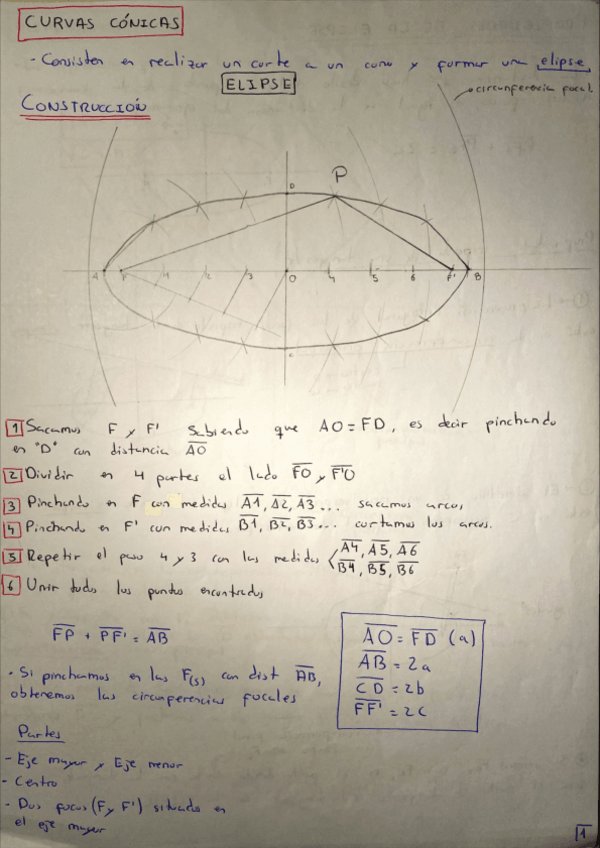 CURVAS CÓNICAS
- Consisten en realizar un corte a un cono y formar una elipse
ELIPSE
circunferencia focal.
CONSTRUCCIÓN
P
D
A F 1 2 3 O 4 5 6 F' B
C
1 Sacamos F y F' Sabiendo que AO = FD, es decir pinchando
en "D" con distancia AO
2 Dividir en 4 partes el lado FO y F'O
3 Pinchando en F con medidas A1, A2, A3... sacamos arcos,
4 Pinchando en F' con medidas B1, B2, B3... cortamos los arcos.
5 Repetir el paso 4 y 3 con las medidas < A4, A5, A6
B4, B5, B6
6 Unir todos los puntos encontrados
FP + PF' = AB
· Si pinchamos en las F(s) con dist AB,
obtenemos las circunferencias focales
AO = FD (a)
AB = 2a
CD = 2b
FF' = 2c
Partes
- Eje mayor y Eje menor
- Centro
- Dos focos (F y F') situados en
el eje mayor
1